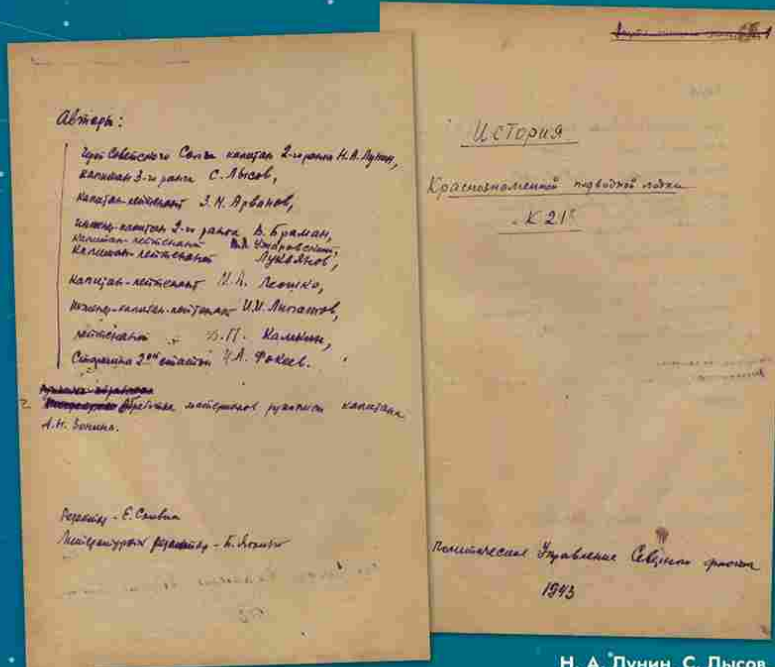 Авторы:
Герой Советского Союза капитан 2-го ранга Н.А. Лунин,
капитан 3-го ранга С. Лысов,
капитан-лейтенант З.М. Арванов,
инженер-капитан 3-го ранга В. Браман,
капитан-лейтенант Ужаровский,
капитан-лейтенант Лукьянов,
капитан-лейтенант М.А. Леошко,
инженер-капитан-лейтенант И.И. Липатов,
лейтенант В.П. Калинин,
Старшина 2ой статьи Н.А. Фокеев.
обработка материалов рукописи капитана
А.И. Зонина.
Редактор - Е.
Литературный редактор - Б.
История
Краснознаменной подводной лодки
"К 21"
Политическое Управление Северного флота
1943
Н. А. Лунин, С. Лысов,